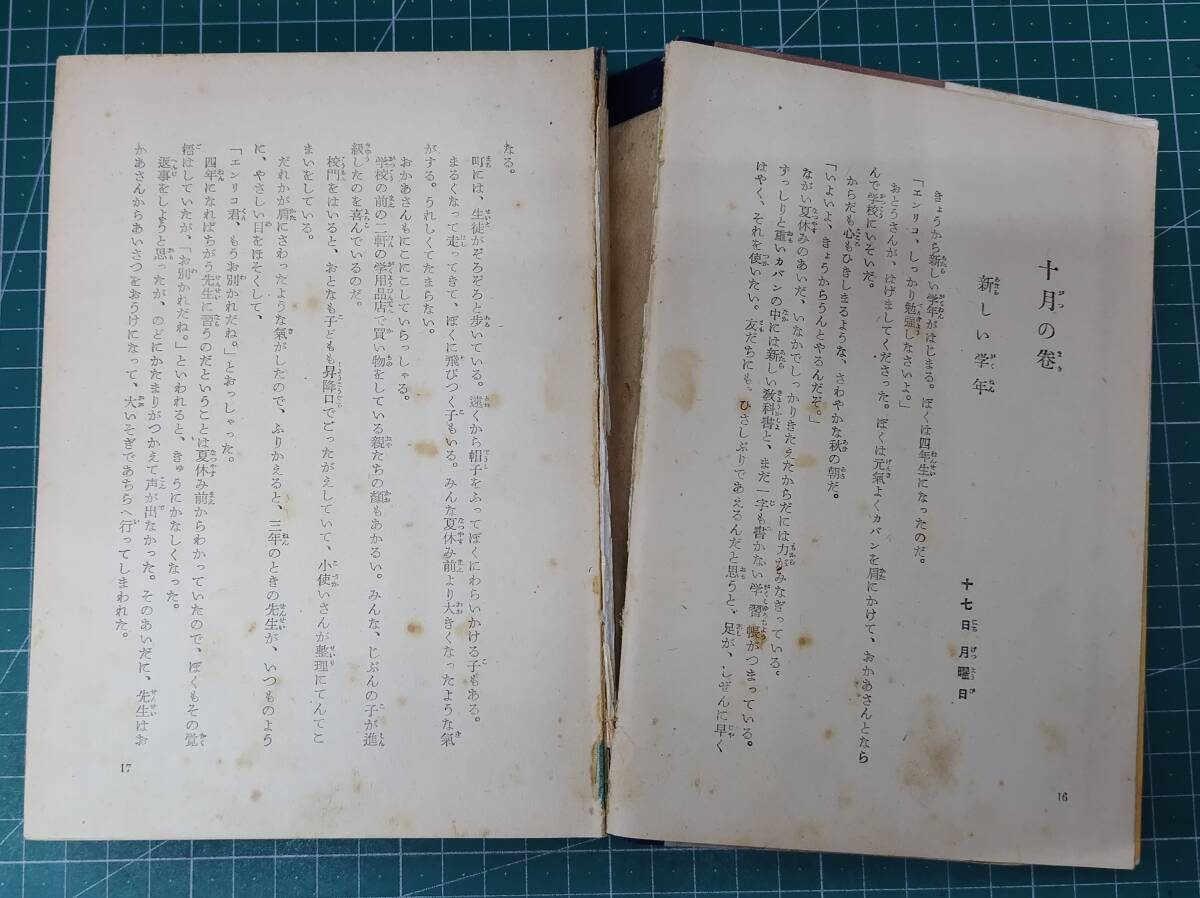 十月の巻
新しい学年
十七日 月曜日
きょうから新しい学年がはじまる。ぼくは四年生になったのだ。
「エンリコ、しっかり勉強しなさいよ。」
おとうさんが、はげましてくださった。ぼくは元氣よくカバンを肩にかけて、おかあさんとなら
んで学校にいそいだ。
からだも心もひきしまるような、さわやかな秋の朝だ。
「いよいよ、きょうからうんとやるんだぞ。」
ながい夏休みのあいだ、いなかでしっかりきたえたからだには力がみなぎっている。
ずっしりと重いカバンの中には新しい教科書と、まだ一字も書かない学習帳がつまっている。
はやく、それを使いたい。友だちにも、ひさしぶりであえるんだと思うと、足が、しぜんに早く
16
なる。
町には、生徒がぞろぞろと歩いている。遠くから帽子をふってぼくにわらいかける子もある。
まるくなって走ってきて、ぼくに飛びつく子もいる。みんな夏休み前より大きくなったような氣
がする。うれしくてたまらない。
おかあさんもにこにこしていらっしゃる。
学校の前の二軒の学用品店で買い物をしている親たちの顔もあかるい。みんな、じぶんの子が進
級したのを喜んでいるのだ。
校門をはいると、おとなも子どもも昇降口でごったがえしていて、小使いさんが整理にてんてこ
まいをしている。
だれかが肩にさわったような氣がしたので、ふりかえると、三年のときの先生が、いつものよう
に、やさしい目をほそくして、
「エンリコ君、もうお別かれだね。」とおっしゃった。
四年になればちがう先生に習うのだということは夏休み前からわかっていたので、ぼくもその覚
悟はしていたが、「お別かれだね。」といわれると、きゅうにかなしくなった。
返事をしようと思ったが、のどにかたまりがつかえて声が出なかった。そのあいだに、先生はお
かあさんからあいさつをおうけになって、大いそぎであちらへ行ってしまわれた。
17